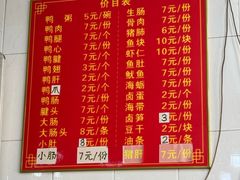 价目表
鸭粥 5元/碗
鸭肉 7元/份
鸭腿 7元/个
鸭心 7元/份
鸭腱 7元/份
鸭翅 7元/个
鸭肝 7元/份
鸭爪 2元/个
鸭肠 7元/份
腱头 7元/份
大肠 7元/份
大肠头 8元/条
小肚 8元/个
小肠 7元/份
生肠 7元/份
骨肉 7元/份
猪肺 6元/份
鱼块 7元/块
虾仁 7元/份
鱼肚 7元/份
鱿鱼 7元/份
海蛎 7元/份
卤蛋 2元/个
海带 2元/份
卤笋 3元/份
豆干 2元/块
油条 2元/条
猪肝 7元/份